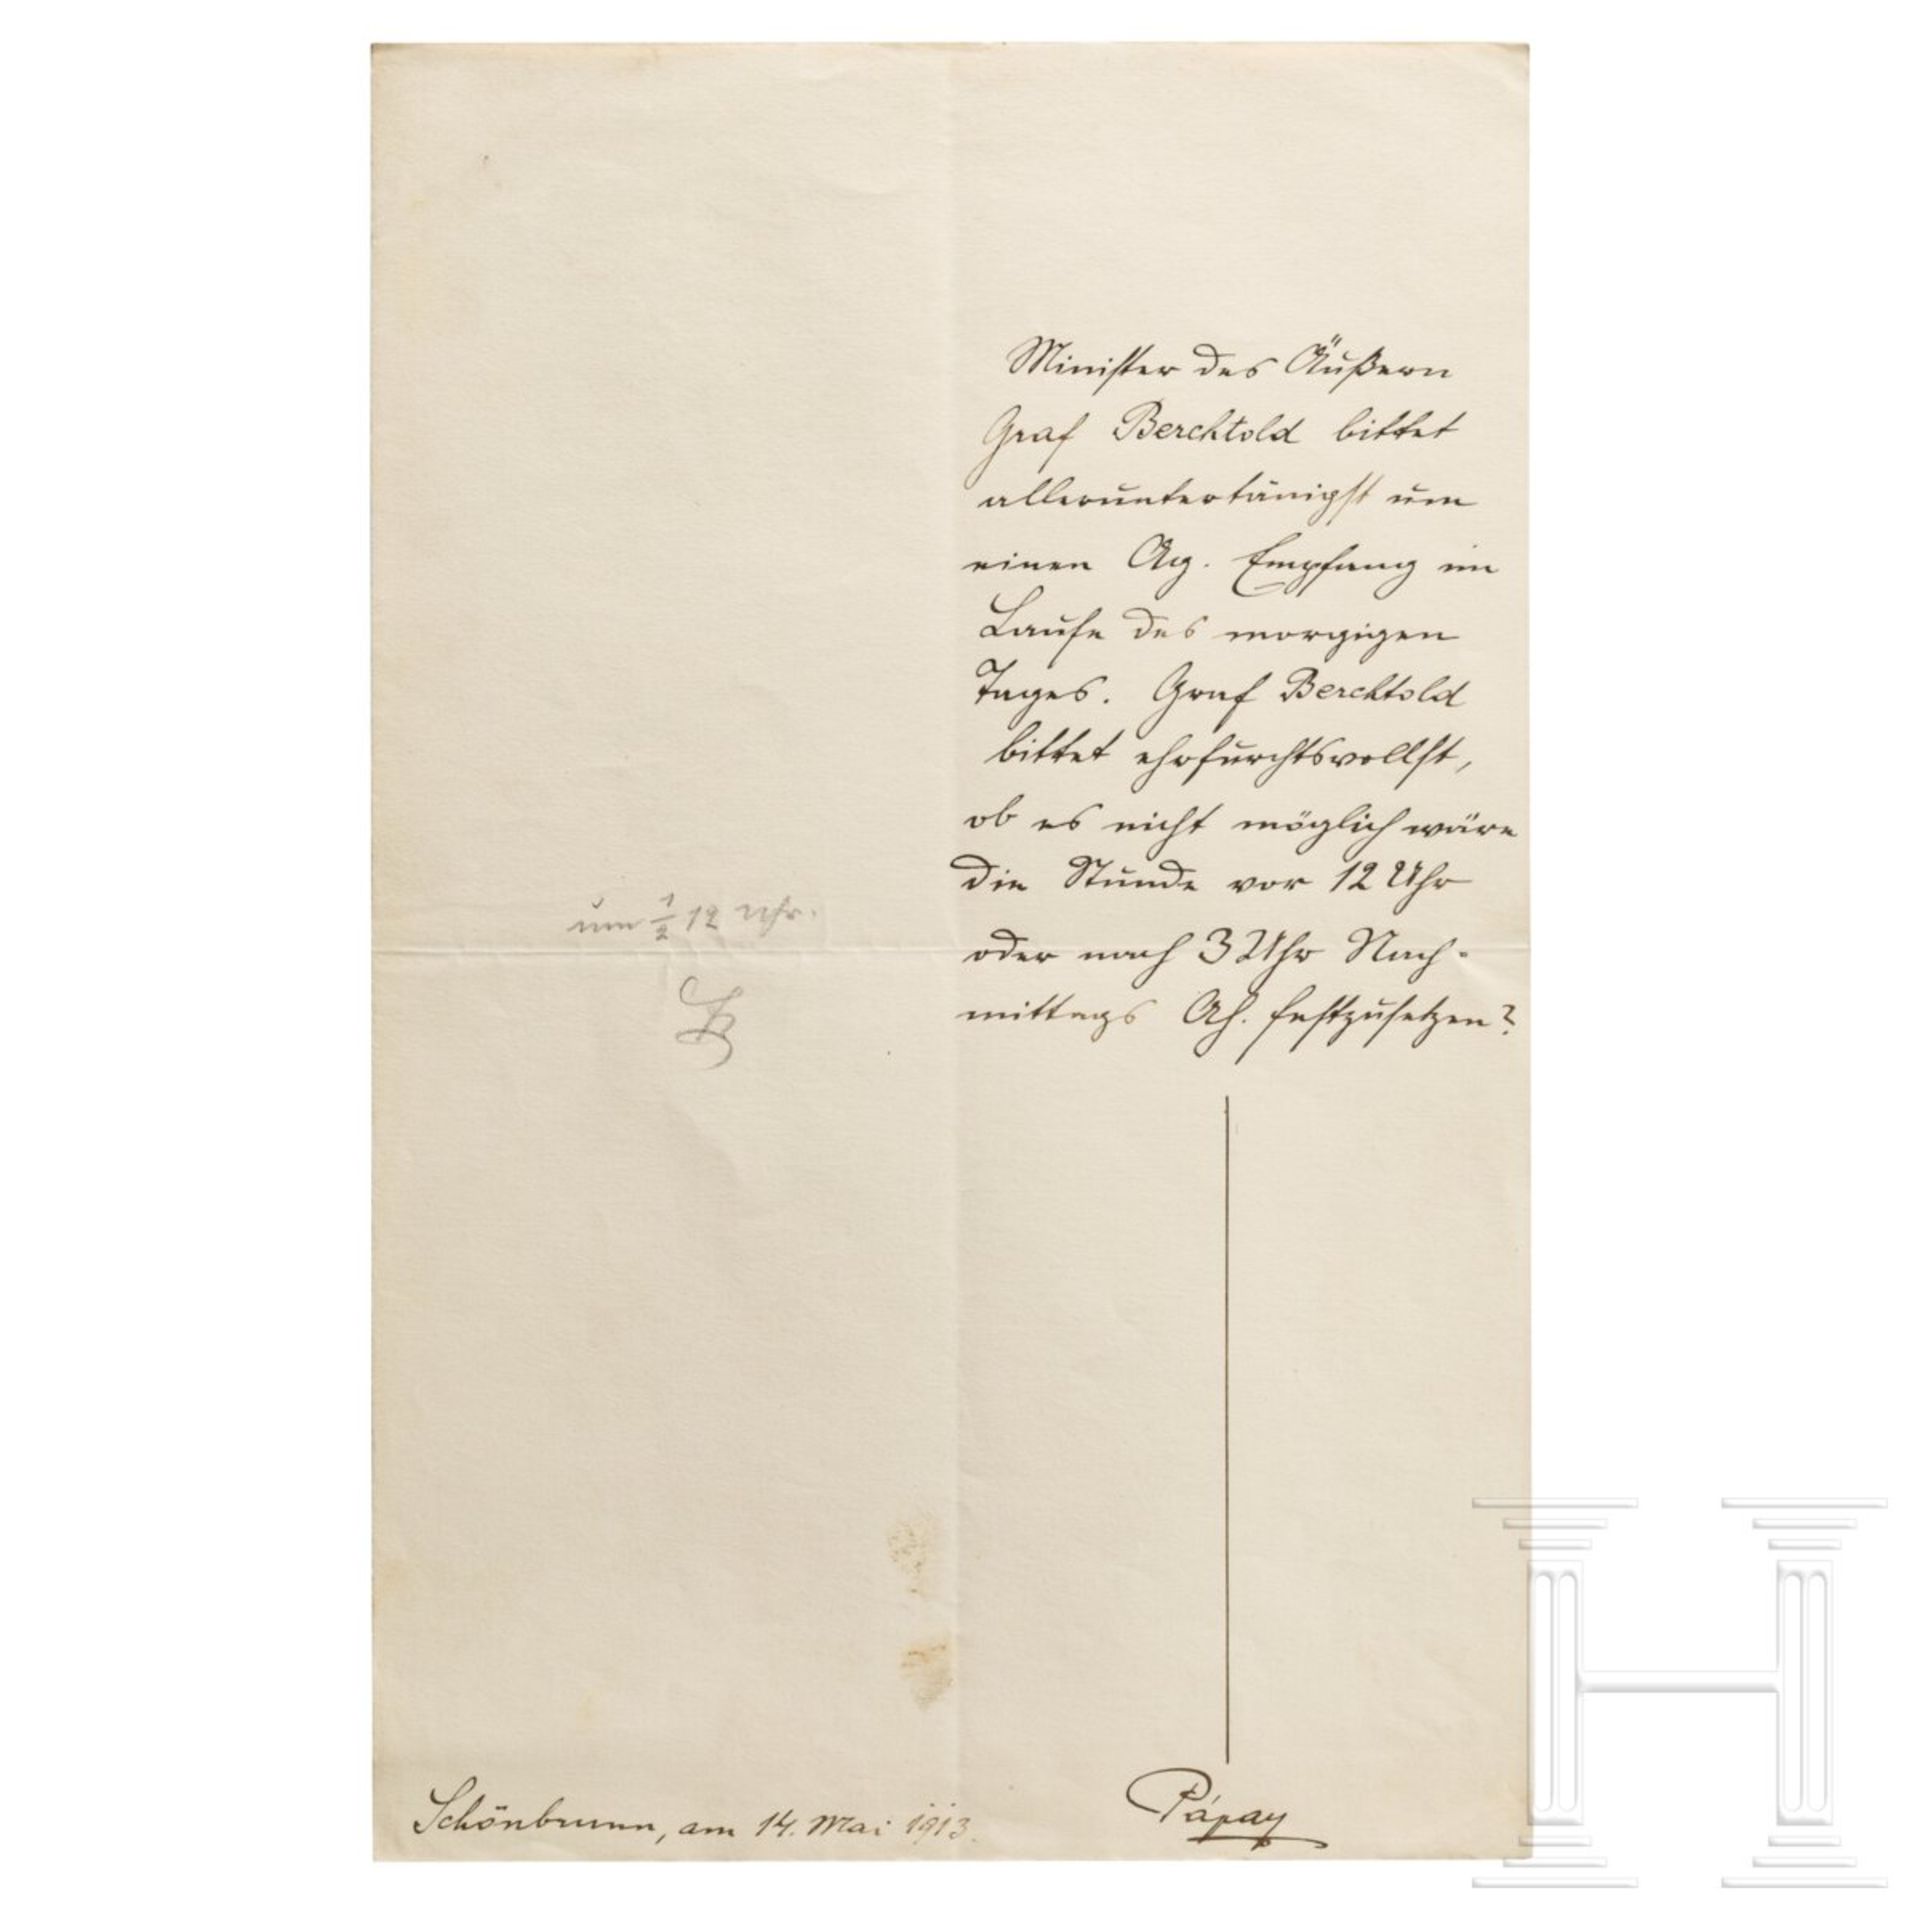 Minister des Äußern
Graf Berchtold bittet
alleruntertänigst um
einen Ag. Empfang im
Laufe des morgigen
Tages. Graf Berchtold
bittet ehrfurchtsvollst,
ob es nicht möglich wäre
die Stunde vor 12 Uhr
oder nach 3 Uhr Nach-
mittags Ah. festzusetzen?
um 1/2 12 Uhr.
Pápay
Schönbrunn, am 14. Mai 1913.
H